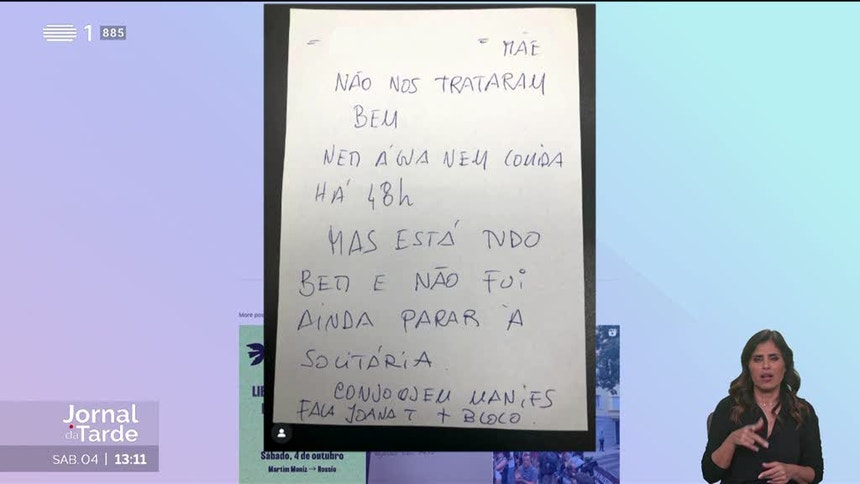 1 885
MÃE
NÃO NOS TRATARAM
BEM
NEM ÁGUA NEM COMIDA
HÁ 48h
MAS ESTÁ TUDO
BEM E NÃO FUI
AINDA PARAR À
SOLITÁRIA.
FALA JOANA T + BLOCO.
Sábado, 4 de outubro
Martim Moniz > Rossio
Jornal
da Tarde
SÁB. 04 | 13:11